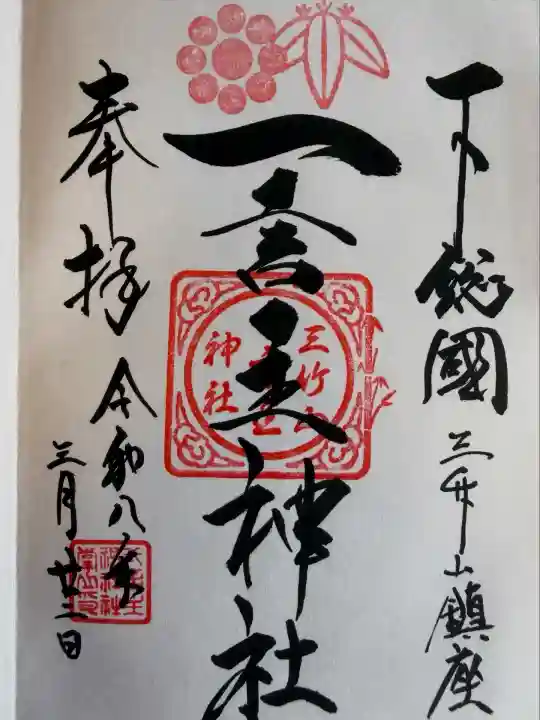 下総國 三竹山鎮座
一言主神社
三竹山
神社
奉拝 令和八年
三月廿二日